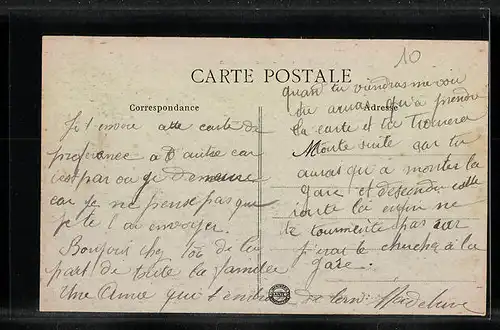 10
CARTE POSTALE
Correspondance
Adresse
Je t'envoie cette carte de
preferance a d'autre car
c'est par ou je demeure
car je ne pense pas que
je te l'ai envoyer.
Bonjour chez toi de la
part de toute la famille
Une Amie qui t'embr
quand tu viendras me voir
tu auras qu'a prendre
la carte et tu trouvera
tout suite car tu
auras qu'a montes la
gare et desendre cette
route la enfin ne
te tourmente pas car
j'irai te chercher à la
gare.
Madeleine